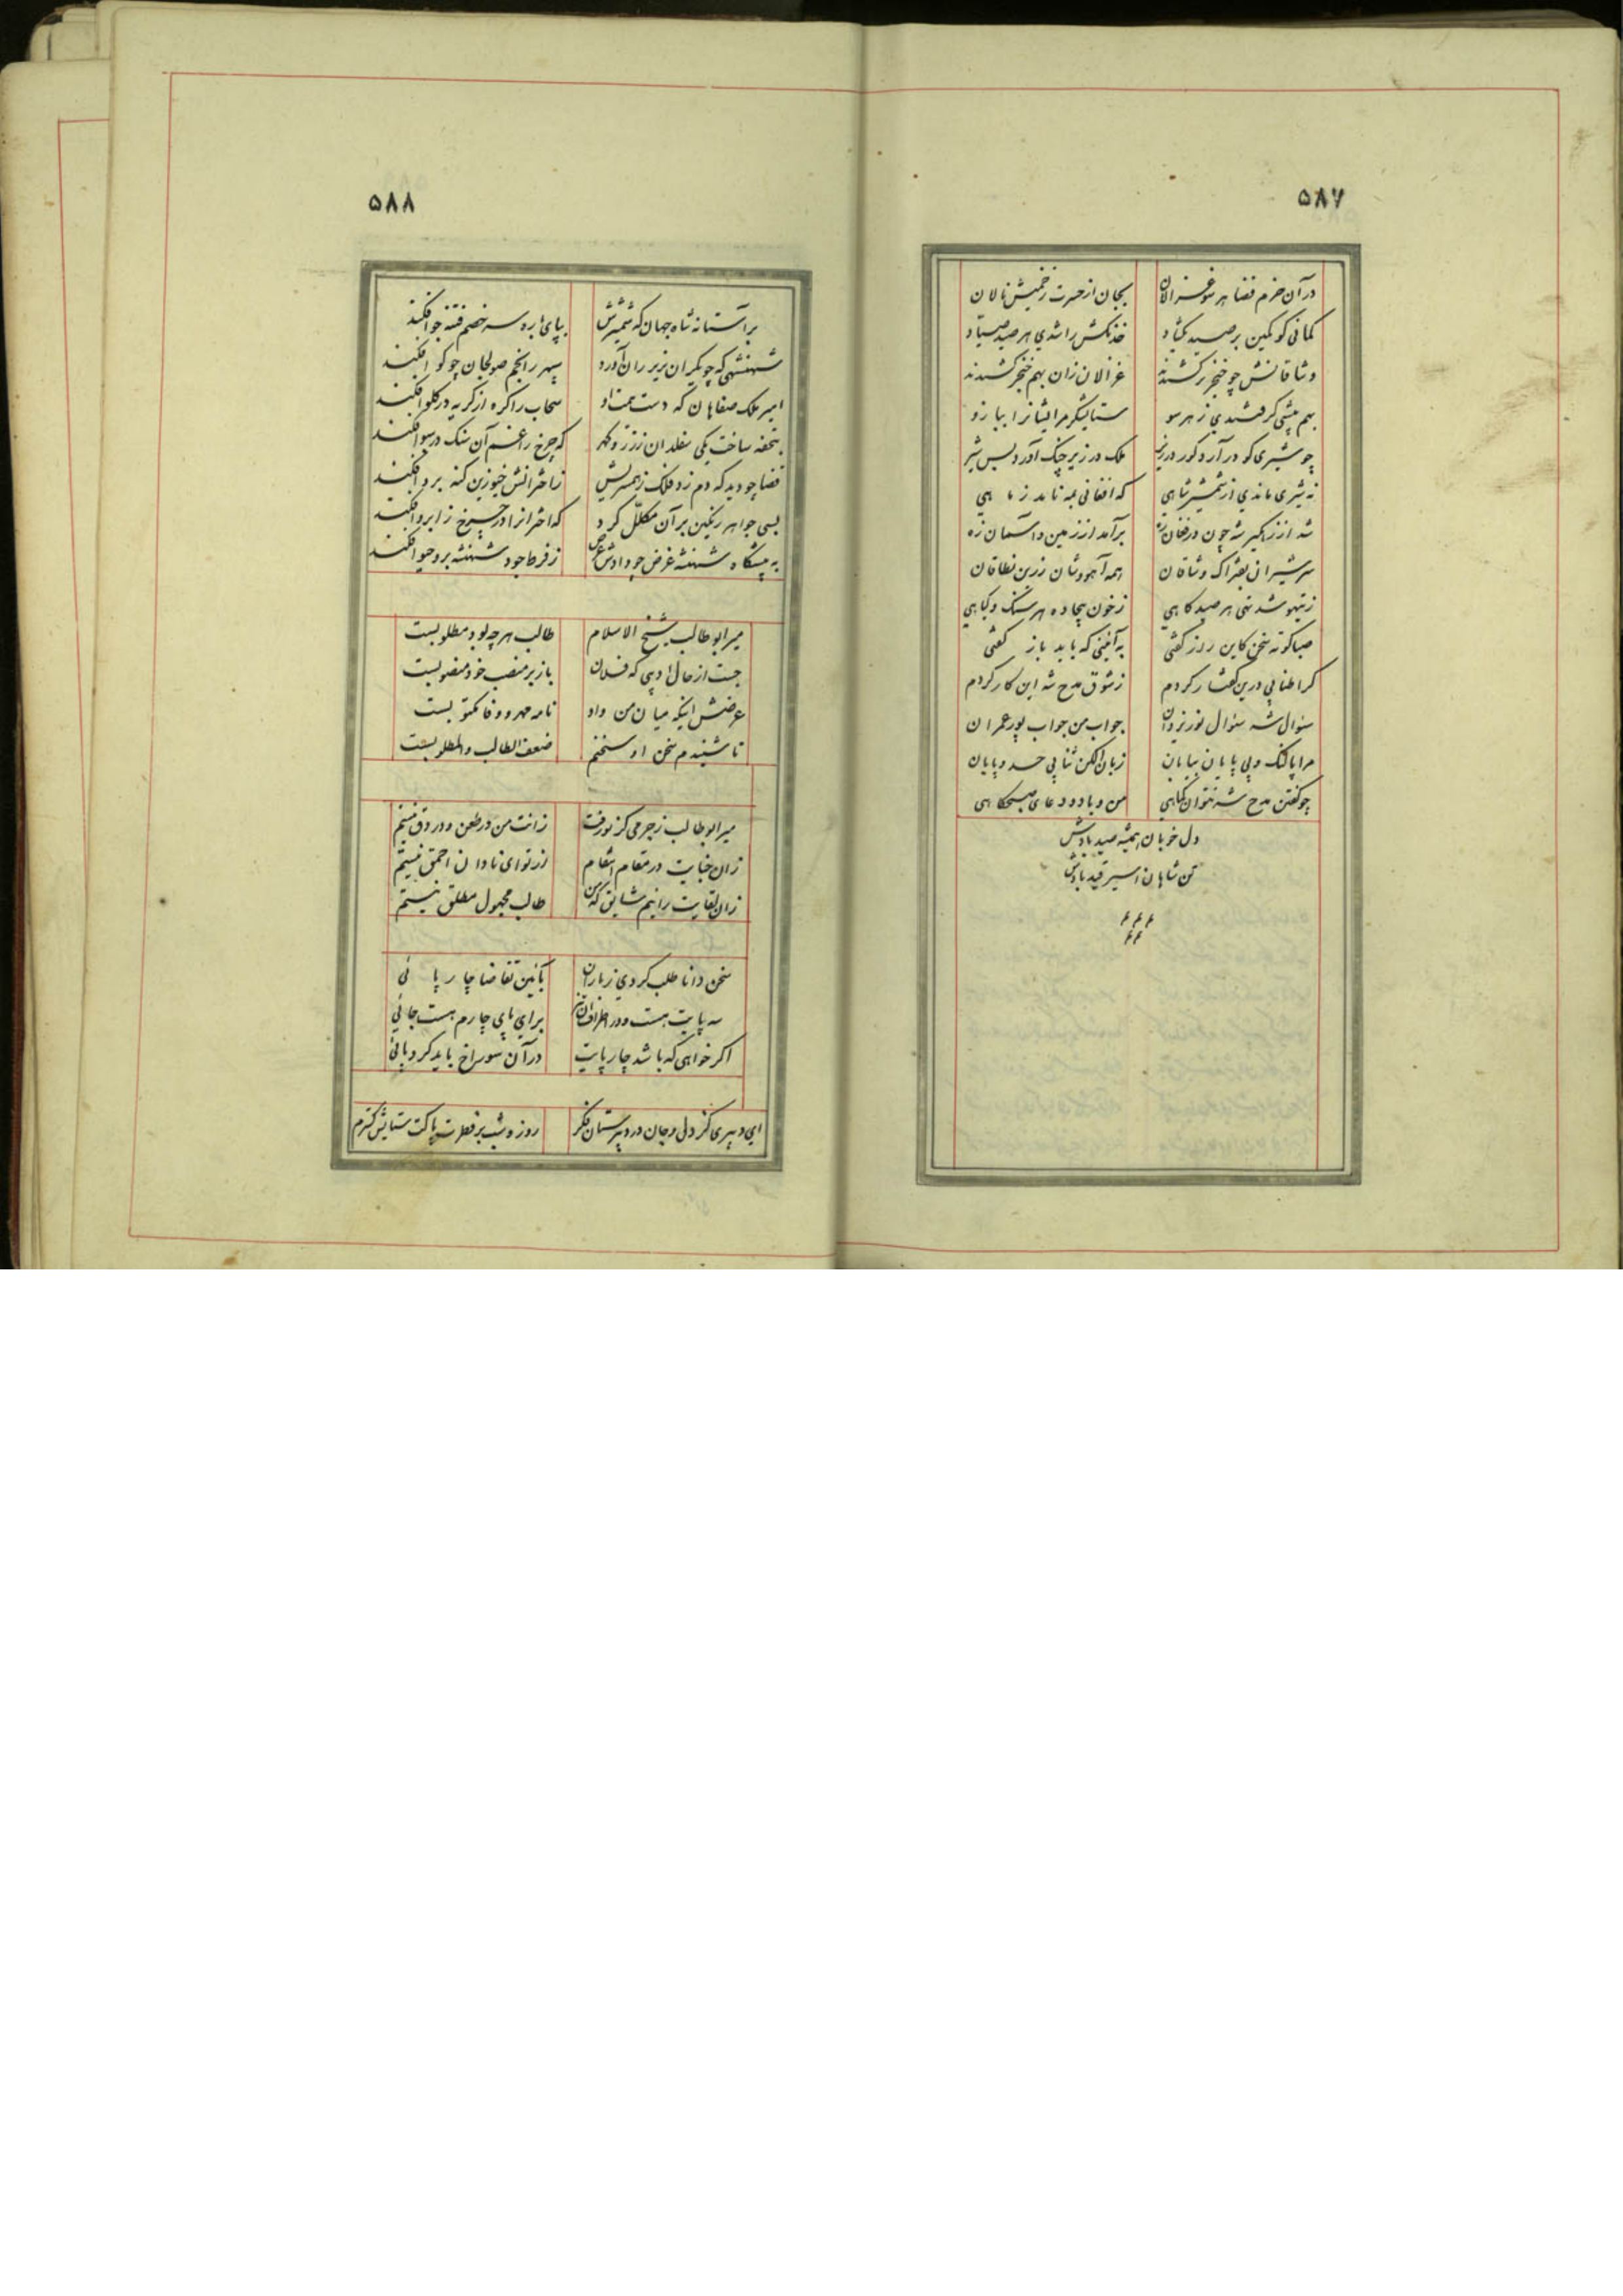 ۵۸۷
در آن خرم فضا هر سو غزالان بجان از حسرت زخمیش نالان
کمانی کو کمین بر صید بگشاد خدنگش را شدی هر صید صیاد
وشاقانش چو خنجر برکشیدند غزالان زان بهم خنجر کشیدند
بهم پیشی گرفتندی ز هر سو ستایشگر مر ایشانرا ببازو
چو شیری کو در آرد گور در زیر ملک در زیر چنگ آورد بس شیر
نه شیری ماندی از شمشیر شاهی که افغانی به ناید ز ماهی
شد از زهگیر شه چون در فغان زه برآمد از زمین و آسمان زه
سر شیران بفتراک وشاقان همه آهووشان زرین نطاقان
ز تیهو شد تهی هر صید گاهی ز خون بیجاده هر سنگ و گیاهی
صبا کوته سخن کاین راز گفتی به آئینی که باید باز گفتی
گر اطنابی درین گفتار کردم ز شوق مدح شه این کار کردم
سئوال شه سئوال نور یزدان جواب من جواب پور عمران
مرا پا لنگ و بی پایان بیابان زبان الکن ثنا بی حد و پایان
چو گفتن مدح شه نتوان کماهی من و باد و دعای صبحگاهی
دل خوبان همیشه صید بادش
تن شاهان اسیر قید بادش
۵۸۸
بر آستانه شاه جهان که شمشیرش بپای باره سر خصم فتنه جو افکند
شهنشهی که چو یکران بزیر ران آورد سپهر را بخم صولجان چو گو افکند
امیر ملک صفاهان که دست همت او سحاب را گره از گریه در گلو افکند
بتحفه ساخت یکی منقلدان ز زر و گهر که چرخ را غم آن سنگ در سبو افکند
قضا چو دید که دم زد فلک ز همسریش ز اخترانش خیو زین گنه برو افکند
بسی جواهر رنگین بر آن مکلل کرد که اخترانرا در چرخ ز ابرو افکند
به پیشگاه شهنشه عرض چو دادش عرض ز فرط جود شهنشه برو خیو افکند
میر ابوطالب شیخ الاسلام طالب هر چه بود مطلوبست
جست از حال ادیبی که فلان باز بر منصب خود منصوبست
غرضش اینکه میان من و او نامه مهر و وفا مکتوبست
تا شنیدم سخن او سخنم ضعف الطالب والمطلوبست
میر ابوطالب ز جرمی کز تو رفت زانت من در طعن و در دق نیستم
زان جنایت در مقام انتقام ز تو ای نادان احمق نیستم
زان لقایت را نیم شایق که من طالب مجهول مطلق نیستم
سخن دانا طلب کردی ز یاران بآئین تقاضا چار پائی
سه پایت هست و در اطراف برای پای چارم هست جائی
اگر خواهی که باشد چار پایت در آن سوراخ باید کرد پائی
ای دبیری کز دل و جان در دبیرستان فکر روز و شب بر فطرت پاکت ستایش گترم